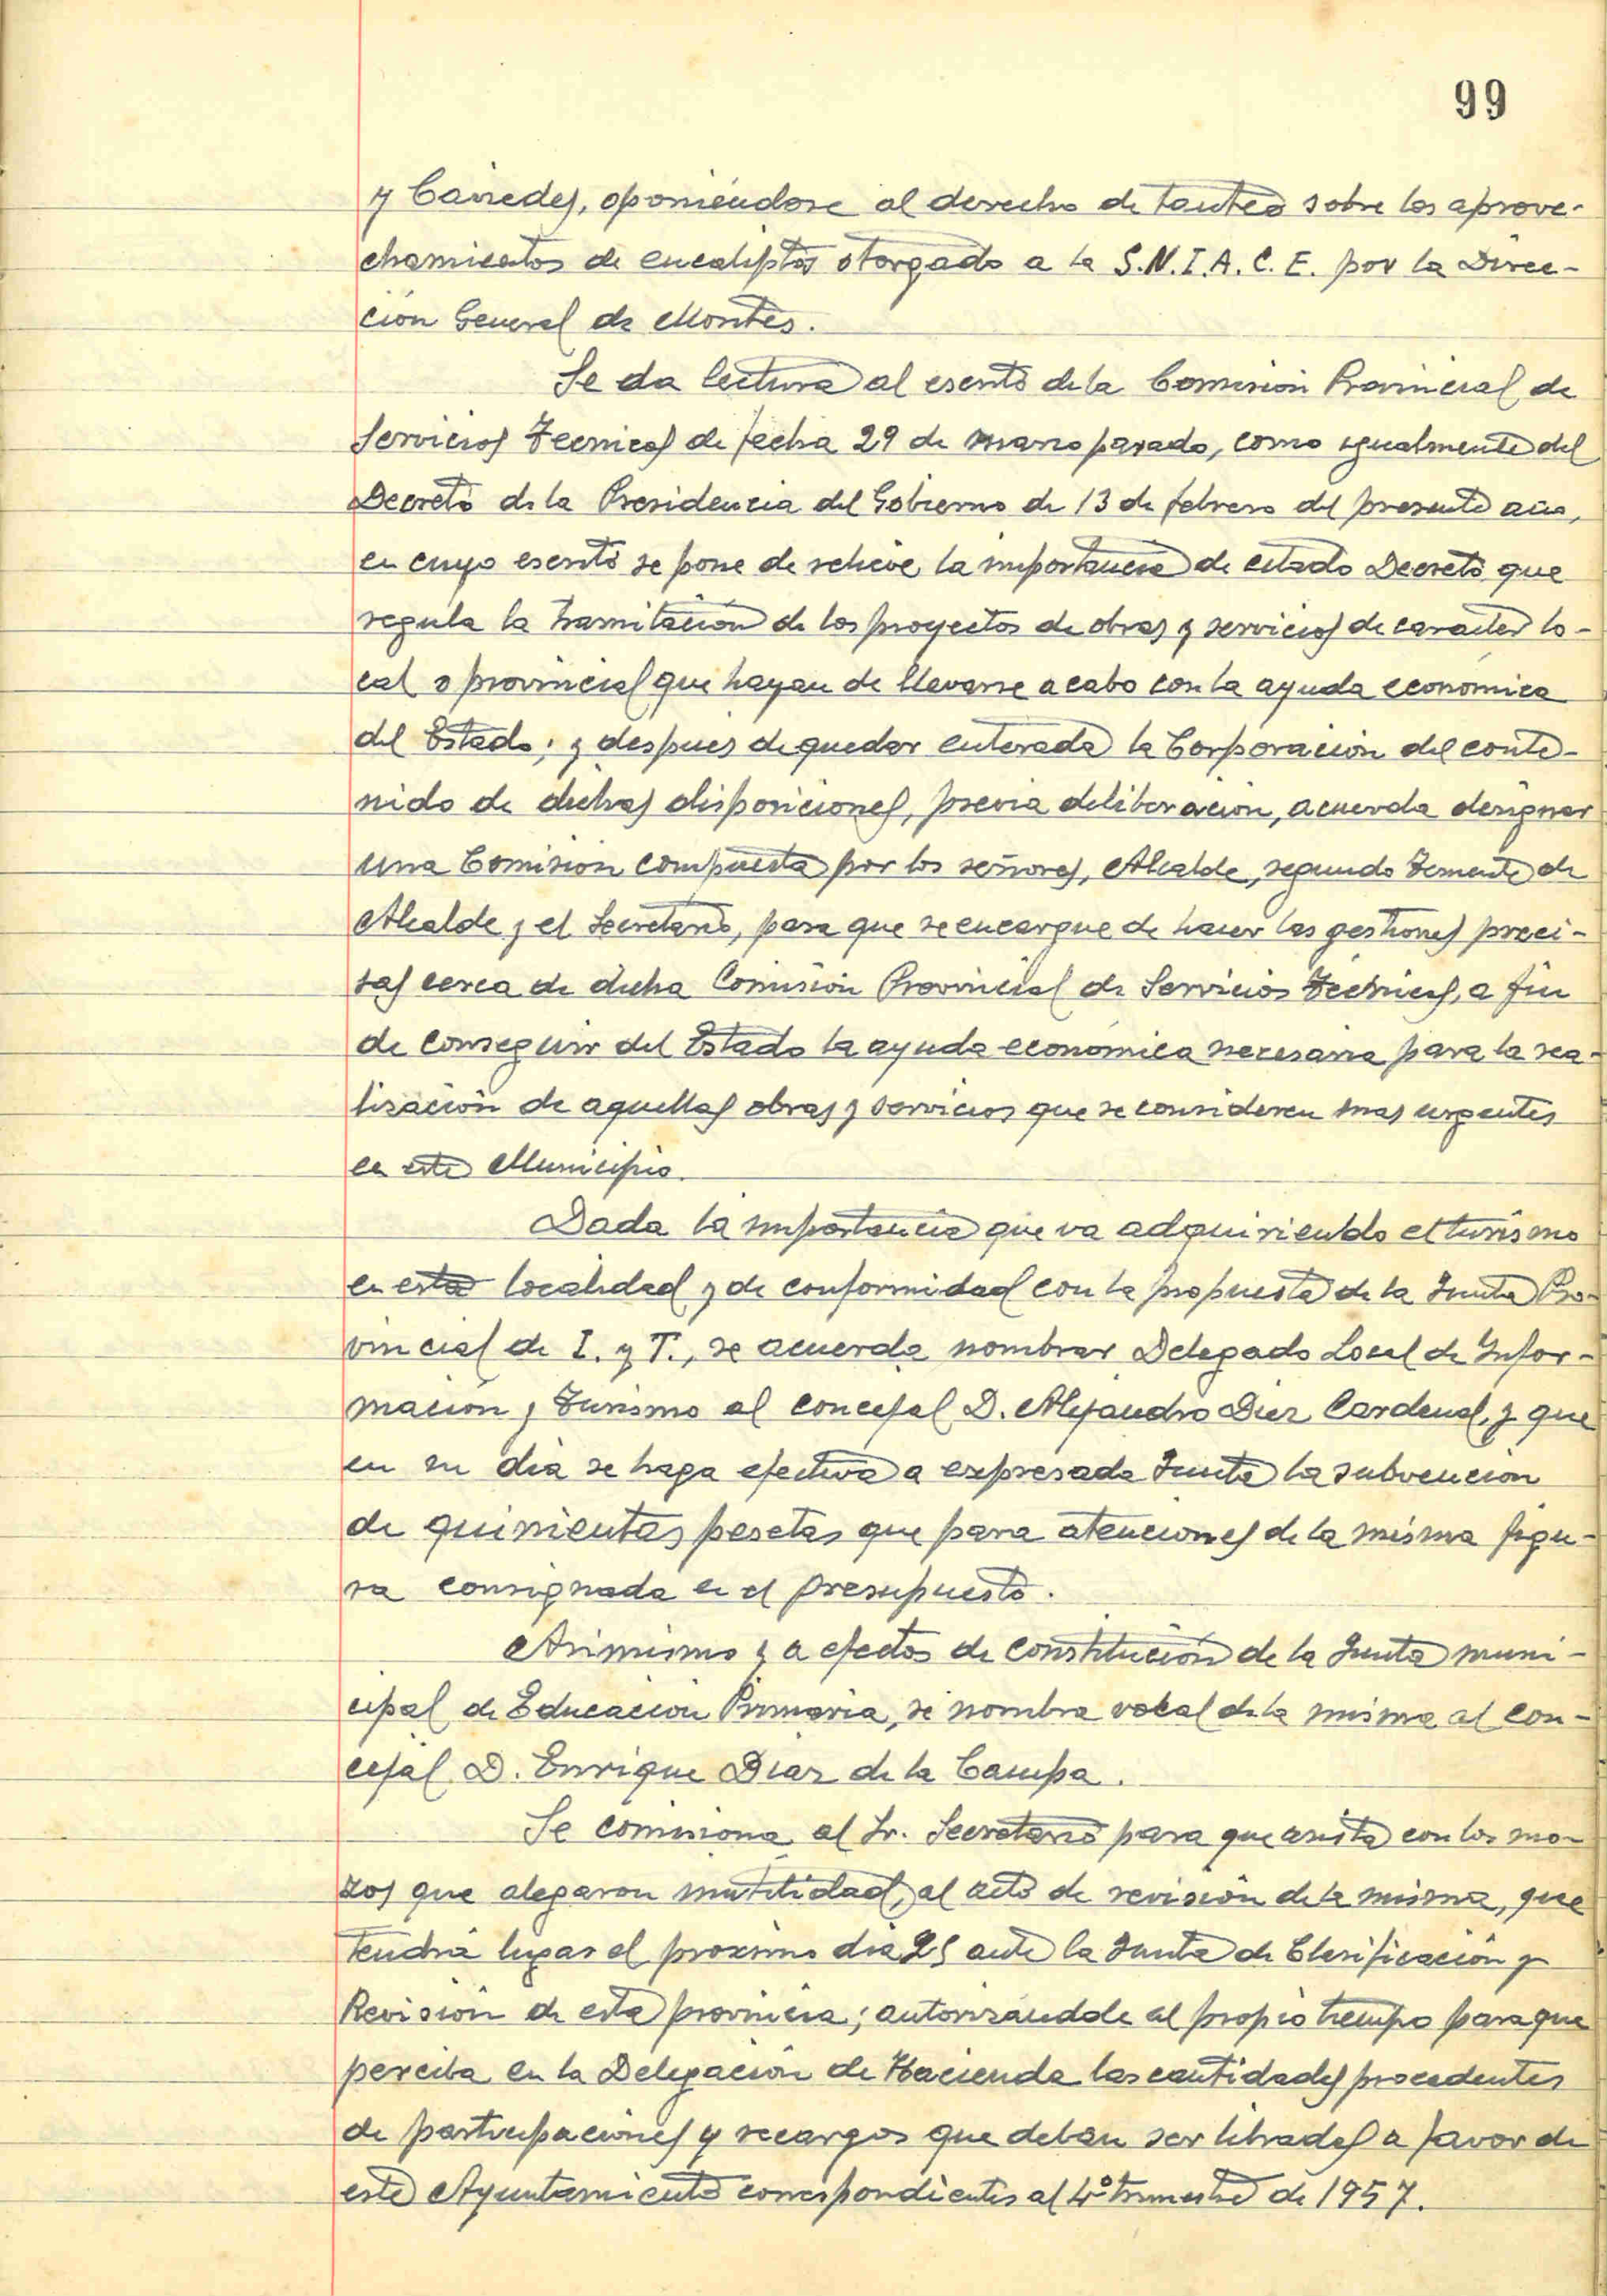 99
y Caviedes, oponiéndose al derecho de tanteo sobre los aprove-
chamientos de eucaliptos otorgado a la S.N.I.A.C.E. por la Direc-
ción General de Montes.
Se da lectura al escrito de la Comisión Provincial de
Servicios Tecnicos de fecha 29 de marzo pasado, como igualmente del
Decreto de la Presidencia del Gobierno de 13 de febrero del presente año,
en cuyo escrito se pone de relieve la importancia de citado Decreto que
regula la tramitación de los proyectos de obras y servicios de caracter lo-
cal o provincial que hayan de llevarse a cabo con la ayuda economica
del Estado; y despues de quedar enterada la Corporación del conte-
nido de dichas disposiciones, previa deliberación, acuerda designar
una Comision compuesta por los señores, Alcalde, segundo Teniente de
Alcalde y el Secretario, para que se encargue de hacer las gestiones preci-
sas cerca de dicha Comisión Provincial de Servicios Técnicos, a fin
de conseguir del Estado la ayuda económica necesaria para la rea-
lización de aquellas obras y servicios que se consideren mas urgentes
en este Municipio.
Dada la importancia que va adquiriendo el turismo
en esta localidad y de conformidad con la propuesta de la Junta Pro-
vincial de I. y T., se acuerda nombrar Delegado Local de Infor-
mación y Turismo al concejal D. Alejandro Diez Cardenal, y que
en su dia se haga efectiva a expresada Junta la subvencion
de quinientas pesetas que para atenciones de la misma figu-
ra consignada en el presupuesto.
Asimismo y a efectos de constitución de la Junta muni-
cipal de Educación Primaria, se nombra vocal de la misma al con-
cejal D. Enrique Diaz de la Campa.
Se comisiona al Sr. Secretario para que asista con los mo-
zos que alegaron inutilidad, al acto de revisión de la misma, que
tendrá lugar el proximo dia 25 ante la Junta de Clasificación y
Revisión de esta provincia; autorizándole al propio tiempo para que
perciba en la Delegación de Hacienda las cantidades procedentes
de participaciones y recargos que deban ser librades a favor de
este Ayuntamiento correspondientes al 4º trimestre de 1957.